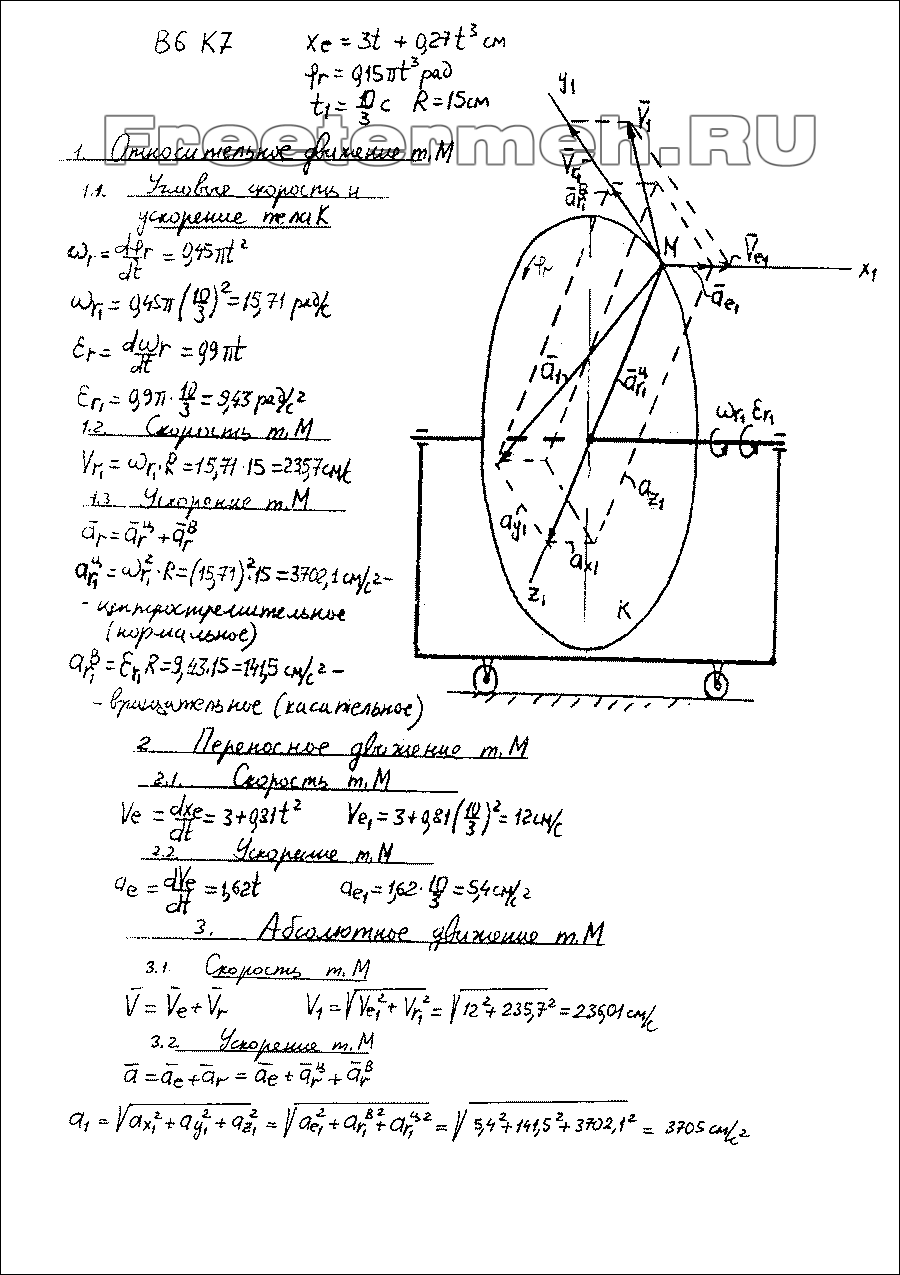 В6 К7
xe = 3t + 0,27t³ см
φr = 0,15πt³ рад
t1 = 10/3 с R = 15см
Freetermeh.RU
1. Относительное движение т.М
1.1. Угловые скорость и
ускорение тела К
ωr = dφr/dt = 0,45πt²
ωr1 = 0,45π(10/3)² = 15,71 рад/с
εr = dωr/dt = 0,9πt
εr1 = 0,9π·10/3 = 9,43 рад/с²
1.2. Скорость т.М
Vr1 = ωr1·R = 15,71·15 = 235,7см/с
1.3 Ускорение т.М
ār = ārц + ārв
ar1ц = ωr1²·R = (15,71)²·15 = 3702,1 см/с² –
- центростремительное
(нормальное)
ar1в = εr1 R = 9,43·15 = 141,5 см/с² –
- вращательное (касательное)
y1
V̄1
V̄r1
ār1в
M
V̄e1
x1
φr
āe1
ā1
ār1ц
ωr1 εr1
ay1
az1
ax1
z1
К
2 Переносное движение т.М
2.1. Скорость т.М
Ve = dxe/dt = 3+0,81t² Ve1 = 3+0,81(10/3)² = 12см/с
2.2. Ускорение т.М
ae = dVe/dt = 1,62t ae1 = 1,62·10/3 = 5,4 см/с²
3. Абсолютное движение т.М
3.1. Скорость т.М
V̄ = V̄e + V̄r V1 = √(Ve1² + Vr1²) = √(12² + 235,7²) = 236,01 см/с
3.2 Ускорение т.М
ā = āe + ār = āe + ārц + ārв
a1 = √(ax1² + ay1² + az1²) = √(ae1² + ar1в² + ar1ц²) = √(5,4² + 141,5² + 3702,1²) = 3705 см/с²